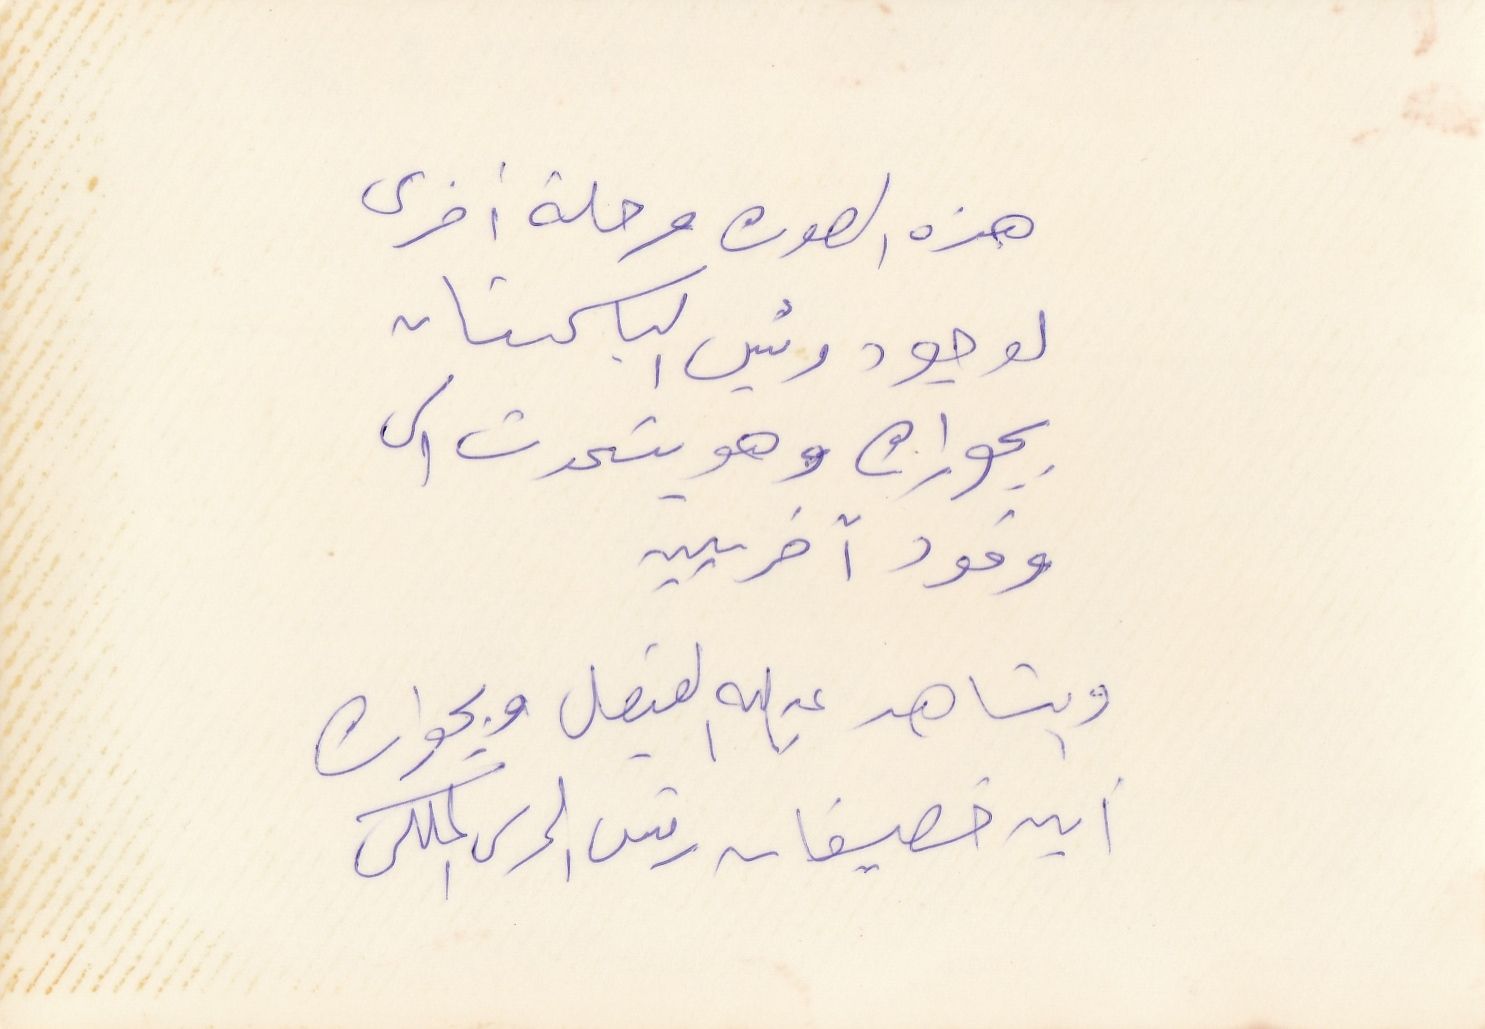 هذه الصورة مرحلة أخرى
لوجود رئيس الباكستان
بجواره وهو يتحدث الى
وفود آخريين
ويشاهد عبدالله الفيصل وبجواره
أيين خصيفان رئيس الحرس الملكى